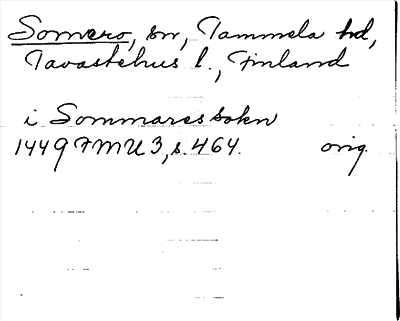 Somero, sn, Tammela hd,
Tavastehus l., Finland
i Sommares sokn
1449 FMU 3, s. 464. orig.